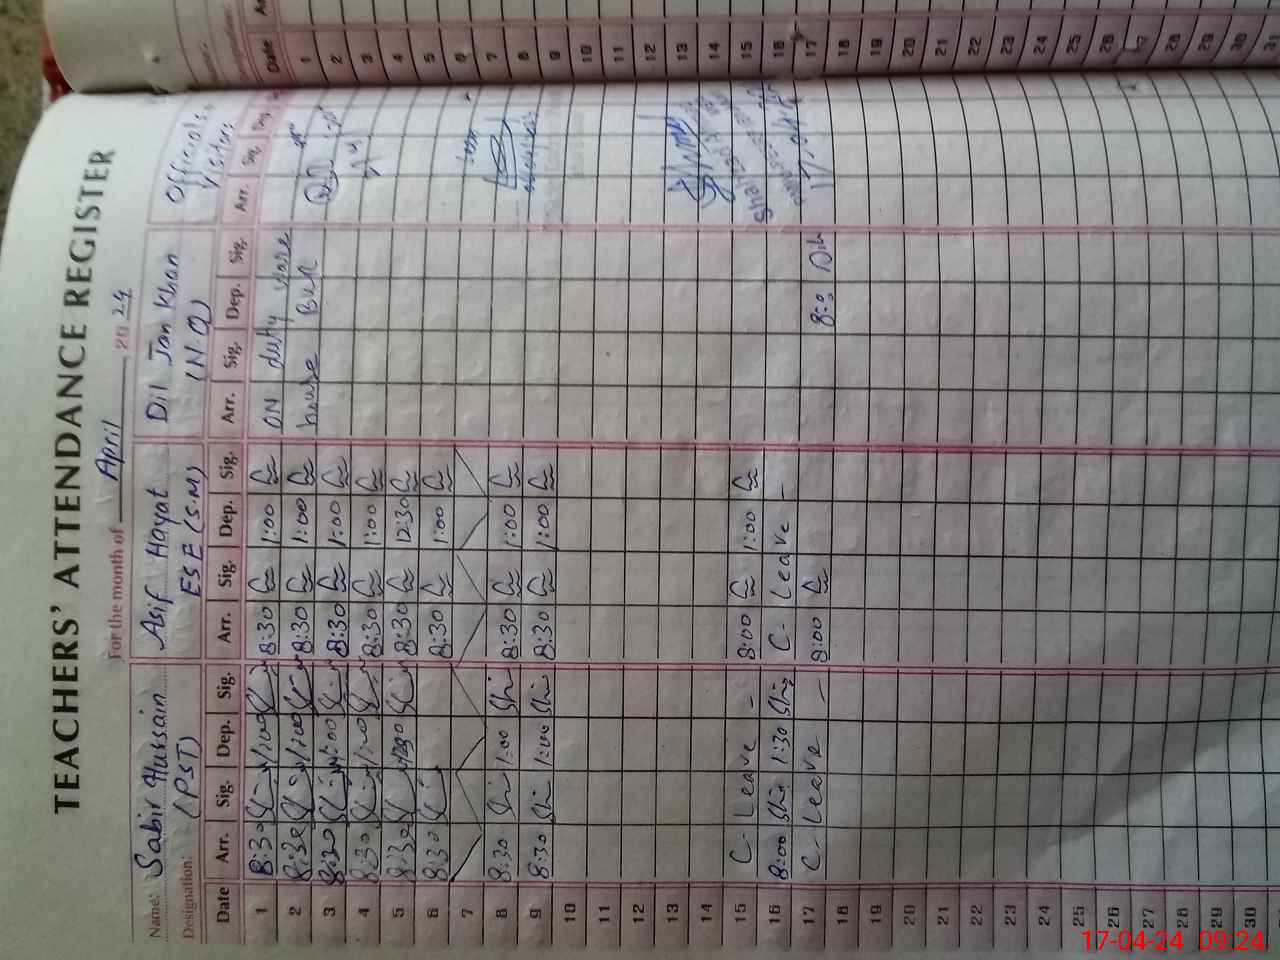 TEACHERS' ATTENDANCE REGISTER
For the month of April 2024
Name: Sabir Hussain Asif Hayat Dil Jan Khan Officials
Designation: (PST) ESE (S.M) (N.Q) Visitors
Date Arr. Sig. Dep. Sig. Arr. Sig. Dep. Sig. Arr. Sig. Dep. Sig. Arr. Sig. Dep.
1 8:30 1:00 8:30 1:00 ON duty
2 8:30 1:00 8:30 1:00 house
3 8:30 1:00 8:30 1:00
4 8:30 1:00 8:30 1:00
5 8:30 8:30 12:30
6 8:30 8:30 1:00
7
8 8:30 1:00 8:30 1:00
9 8:30 1:00 8:30 1:00
10
11
12
13
14
15 C- Leave - 8:00 1:00
16 8:00 1:30 C- Leave -
17 C- Leave - 8:00 8:0 Dil
18
19
20
21
22
23
24
25
26
27
28
29
30
Date
1
2
3
4
5
6
7
8
9
10
11
12
13
14
15
16
17
18
19
20
21
22
23
24
25
26
27
28
29
30
31
17-04-24 09:24